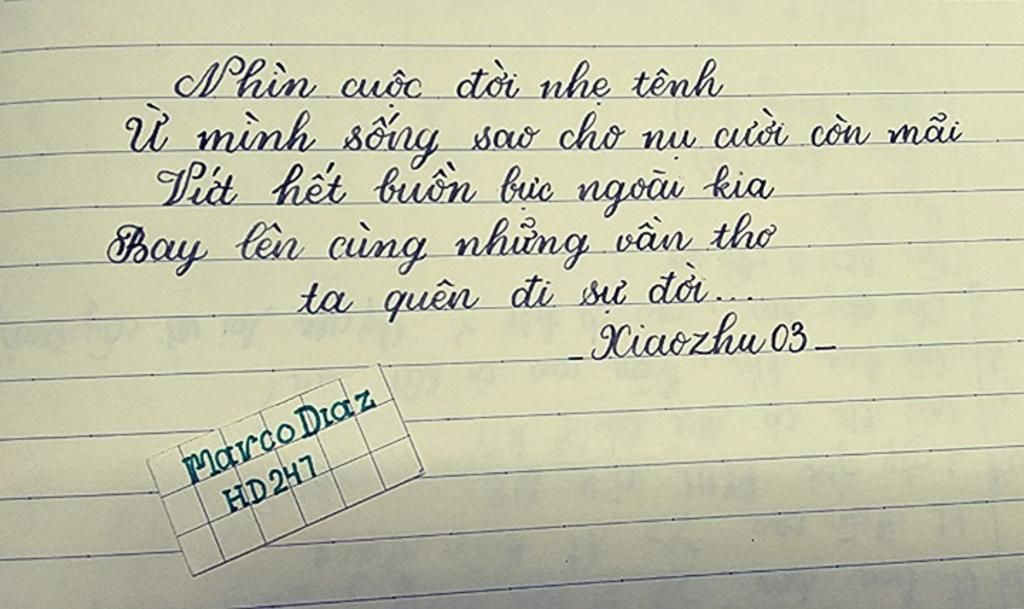 Nhìn cuộc đời nhẹ tênh
Ừ mình sống sao cho nụ cười còn mãi
Vứt hết buồn bực ngoài kia
Bay lên cùng những vần thơ
ta quên đi sự đời...
_Xiaozhu03_
Marco Diaz
HD247